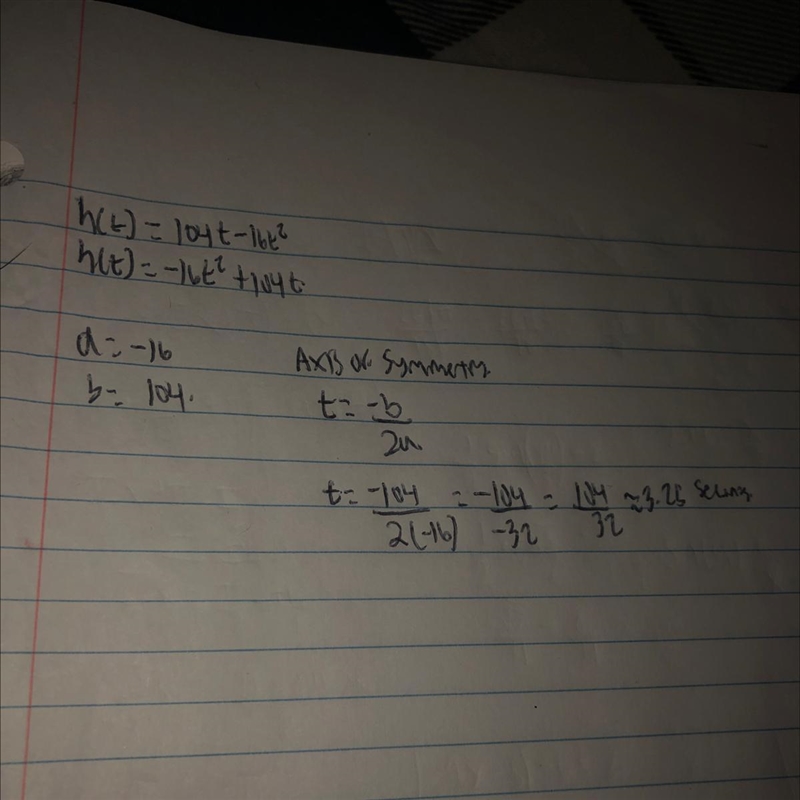 h(t) = 104t - 16t²
h(t) = -16t² + 104t.
a = -16
b = 104.
Axis of Symmetry.
t = -b/2a
t = -104/2(-16) = -104/-32 = 104/32 ≈ 3.25